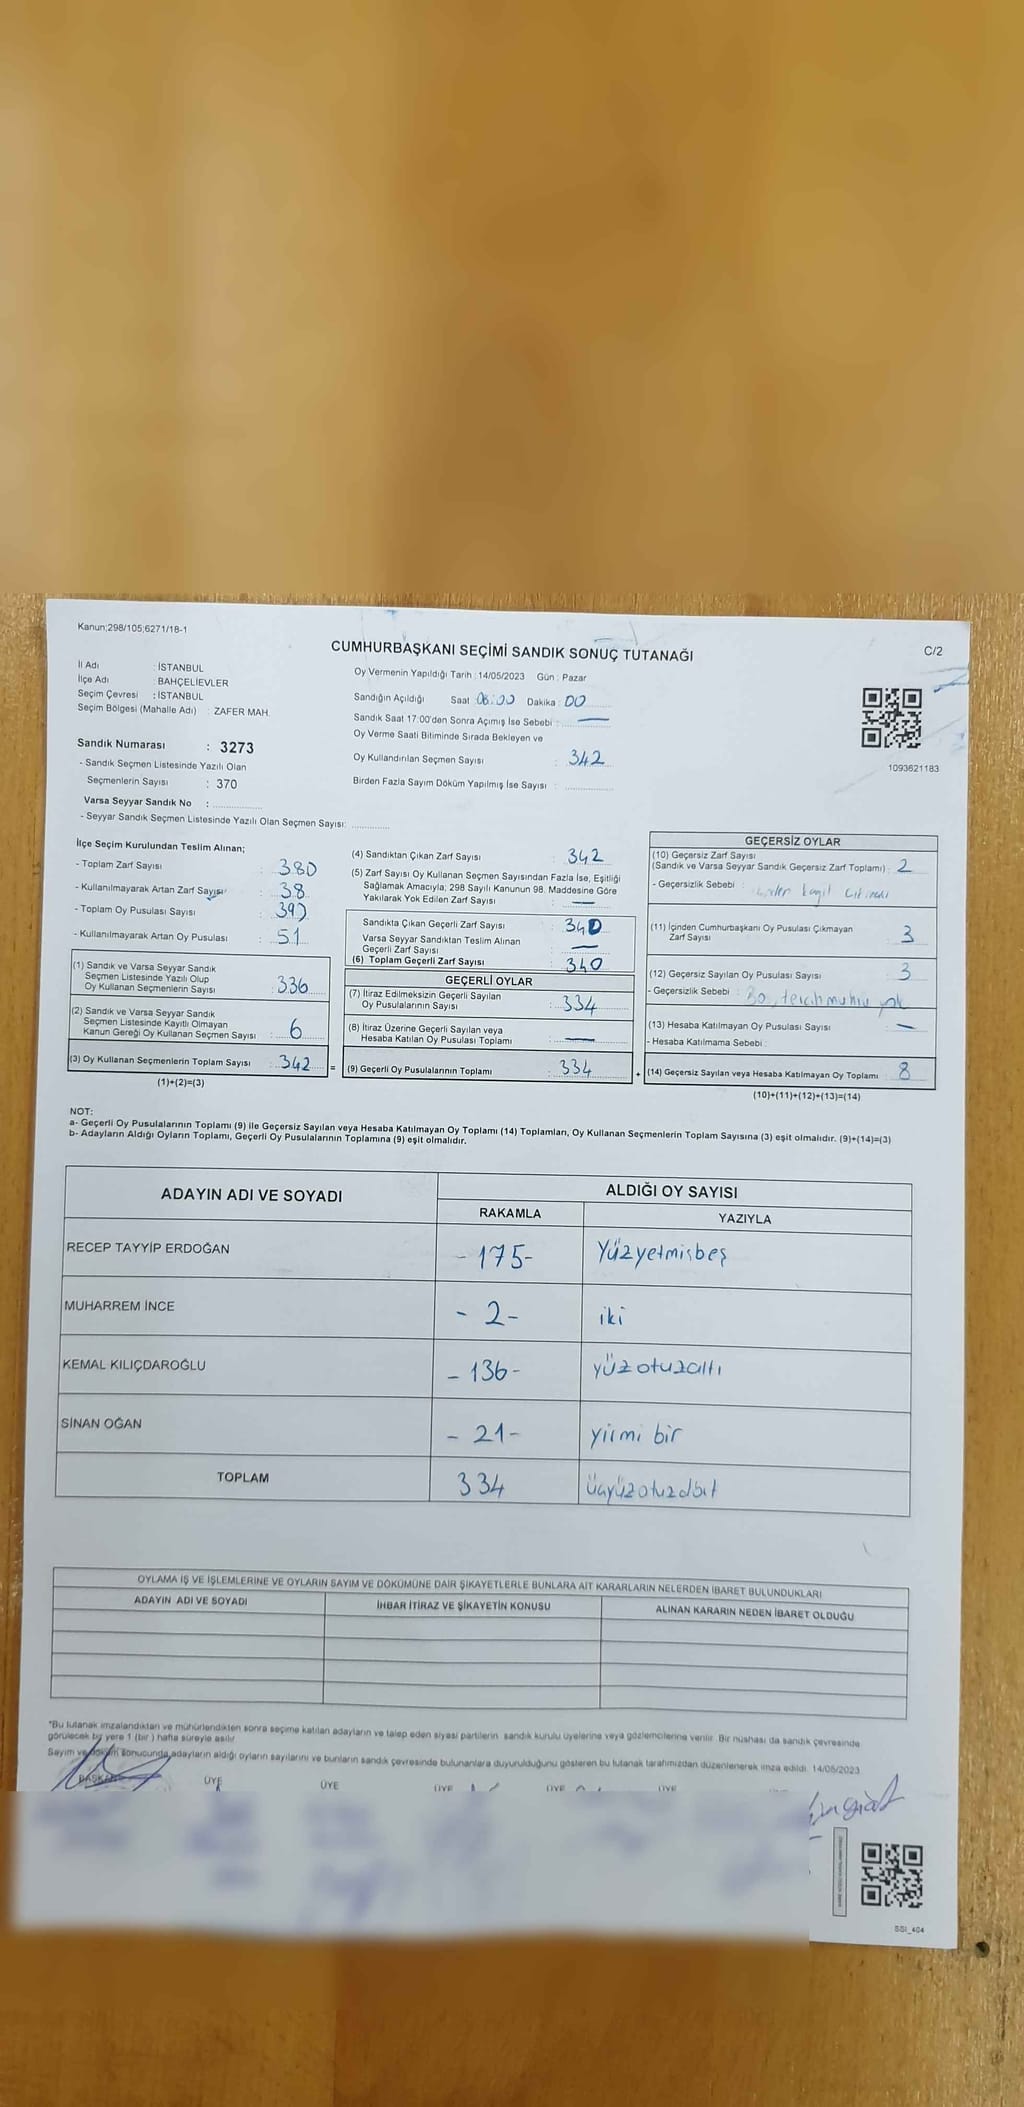 Kanun;298/105;6271/18-1
CUMHURBAŞKANI SEÇİMİ SANDIK SONUÇ TUTANAĞI
C/2
İl Adı : İSTANBUL
İlçe Adı : BAHÇELİEVLER
Seçim Çevresi : İSTANBUL
Seçim Bölgesi (Mahalle Adı) : ZAFER MAH.
Sandık Numarası : 3273
- Sandık Seçmen Listesinde Yazılı Olan
Seçmenlerin Sayısı : 370
Varsa Seyyar Sandık No :
- Seyyar Sandık Seçmen Listesinde Yazılı Olan Seçmen Sayısı:
Oy Vermenin Yapıldığı Tarih : 14/05/2023 Gün : Pazar
Sandığın Açıldığı Saat 08:00 Dakika : 00
Sandık Saat 17:00'den Sonra Açımış İse Sebebi : —
Oy Verme Saati Bitiminde Sırada Bekleyen ve
Oy Kullandırılan Seçmen Sayısı : 342
Birden Fazla Sayım Döküm Yapılmış İse Sayısı :
1093621183
İlçe Seçim Kurulundan Teslim Alınan;
- Toplam Zarf Sayısı : 380
- Kullanılmayarak Artan Zarf Sayısı : 38
- Toplam Oy Pusulası Sayısı :
- Kullanılmayarak Artan Oy Pusulası : 51
(1) Sandık ve Varsa Seyyar Sandık
Seçmen Listesinde Yazılı Olup
Oy Kullanan Seçmenlerin Sayısı : 336
(2) Sandık ve Varsa Seyyar Sandık
Seçmen Listesinde Kayıtlı Olmayan
Kanun Gereği Oy Kullanan Seçmen Sayısı : 6
(3) Oy Kullanan Seçmenlerin Toplam Sayısı : 342
(1)+(2)=(3)
(4) Sandıktan Çıkan Zarf Sayısı : 342
(5) Zarf Sayısı Oy Kullanan Seçmen Sayısından Fazla İse, Eşitliği
Sağlamak Amacıyla; 298 Sayılı Kanunun 98. Maddesine Göre
Yakılarak Yok Edilen Zarf Sayısı : —
Sandıkta Çıkan Geçerli Zarf Sayısı : 340
Varsa Seyyar Sandıktan Teslim Alınan
Geçerli Zarf Sayısı : —
(6) Toplam Geçerli Zarf Sayısı : 340
GEÇERLİ OYLAR
(7) İtiraz Edilmeksizin Geçerli Sayılan
Oy Pusulalarının Sayısı : 334
(8) İtiraz Üzerine Geçerli Sayılan veya
Hesaba Katılan Oy Pusulası Toplamı : —
= (9) Geçerli Oy Pusulalarının Toplamı : 334 +
GEÇERSİZ OYLAR
(10) Geçersiz Zarf Sayısı
(Sandık ve Varsa Seyyar Sandık Geçersiz Zarf Toplamı) : 2
- Geçersizlik Sebebi :
(11) İçinden Cumhurbaşkanı Oy Pusulası Çıkmayan
Zarf Sayısı : 3
(12) Geçersiz Sayılan Oy Pusulası Sayısı : 3
- Geçersizlik Sebebi : Boş, tercih mührü yok
(13) Hesaba Katılmayan Oy Pusulası Sayısı : —
- Hesaba Katılmama Sebebi :
(14) Geçersiz Sayılan veya Hesaba Katılmayan Oy Toplamı : 8
(10)+(11)+(12)+(13)=(14)
NOT:
a- Geçerli Oy Pusulalarının Toplamı (9) ile Geçersiz Sayılan veya Hesaba Katılmayan Oy Toplamı (14) Toplamları, Oy Kullanan Seçmenlerin Toplam Sayısına (3) eşit olmalıdır. (9)+(14)=(3)
b- Adayların Aldığı Oyların Toplamı, Geçerli Oy Pusulalarının Toplamına (9) eşit olmalıdır.
ADAYIN ADI VE SOYADI
ALDIĞI OY SAYISI
RAKAMLA YAZIYLA
RECEP TAYYİP ERDOĞAN - 175 - Yüzyetmişbeş
MUHARREM İNCE - 2 - iki
KEMAL KILIÇDAROĞLU - 136 - yüzotuzaltı
SİNAN OĞAN - 21 - yirmi bir
TOPLAM 334 üçyüzotuzdört
OYLAMA İŞ VE İŞLEMLERİNE VE OYLARIN SAYIM VE DÖKÜMÜNE DAİR ŞİKAYETLERLE BUNLARA AİT KARARLARIN NELERDEN İBARET BULUNDUKLARI
ADAYIN ADI VE SOYADI İHBAR İTİRAZ VE ŞİKAYETİN KONUSU ALINAN KARARIN NEDEN İBARET OLDUĞU
*Bu tutanak imzalandıktan ve mühürlendikten sonra seçime katılan adayların ve talep eden siyasi partilerin sandık kurulu üyelerine veya gözlemcilerine verilir. Bir nüshası da sandık çevresinde
görülecek bir yere 1 (bir) hafta süreyle asılır
Sayım ve döküm sonucunda adayların aldığı oyların sayılarını ve bunların sandık çevresinde bulunanlara duyurulduğunu gösteren bu tutanak tarafımızdan düzenlenerek imza edildi. 14/05/2023
BAŞKAN ÜYE ÜYE ÜYE ÜYE ÜYE
SSI_404